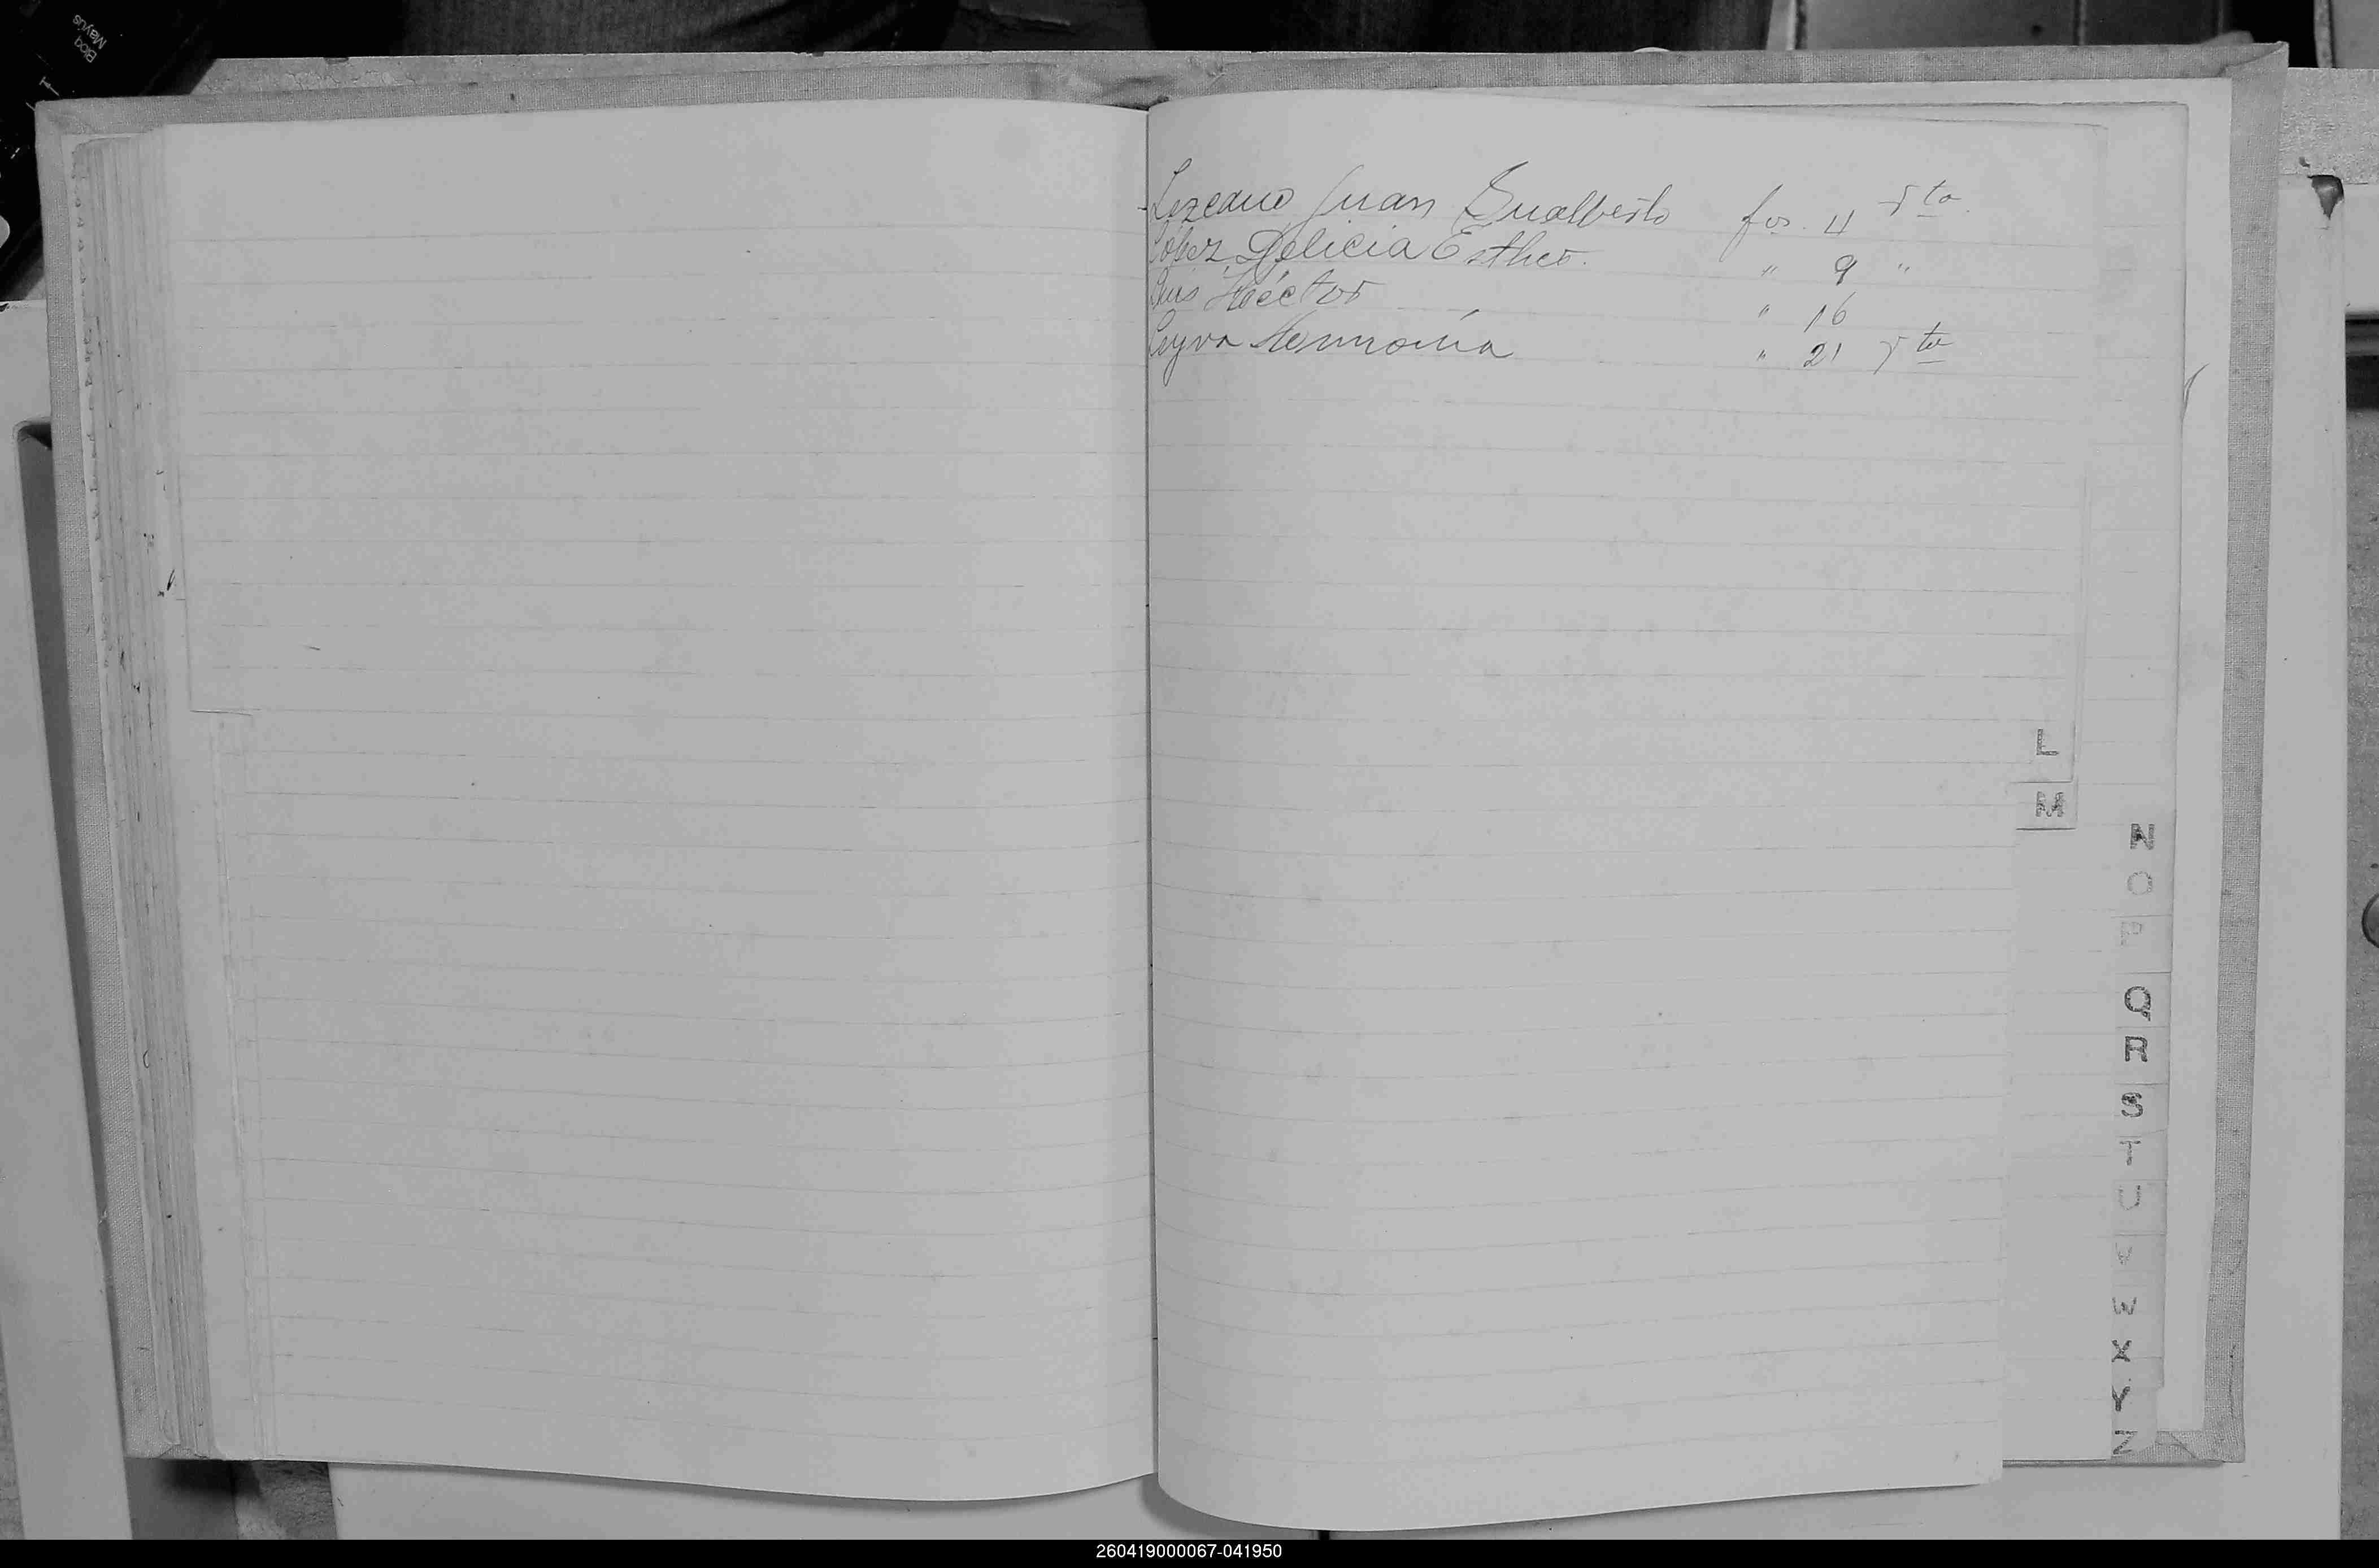 Bloq
Mayús
Lezcano Juan Gualberto fos. 4 5to
López Delicia Esther. " 9 "
Luis Héctor " 16
Leyva Herminia " 21 5to
L
M
N
O
P
Q
R
S
T
U
V
W
X
Y
Z
260419000067-041950